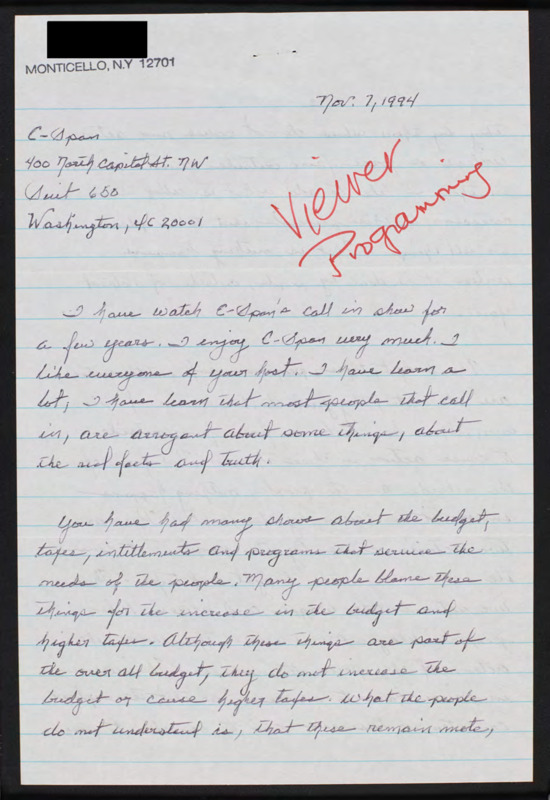 MONTICELLO, N.Y 12701
Nov. 7, 1994
C-Span
400 North Capitol St. NW
Suit 650
Washington, DC 20001
Viewer
Programming
I have watch C-Span's call in show for
a few years. I enjoy C-Span very much. I
like everyone of your host. I have learn a
lot, I have learn that most people that call
in, are arrogant about some things, about
the real facts and truth.
You have had many shows about the budget,
taxes, intitlements and programs that service the
needs of the people. Many people blame these
things for the increase in the budget and
higher taxes. Although these things are part of
the over all budget, they do not increase the
budget or cause higher taxes. What the people
do not understand is, that these remain mote,